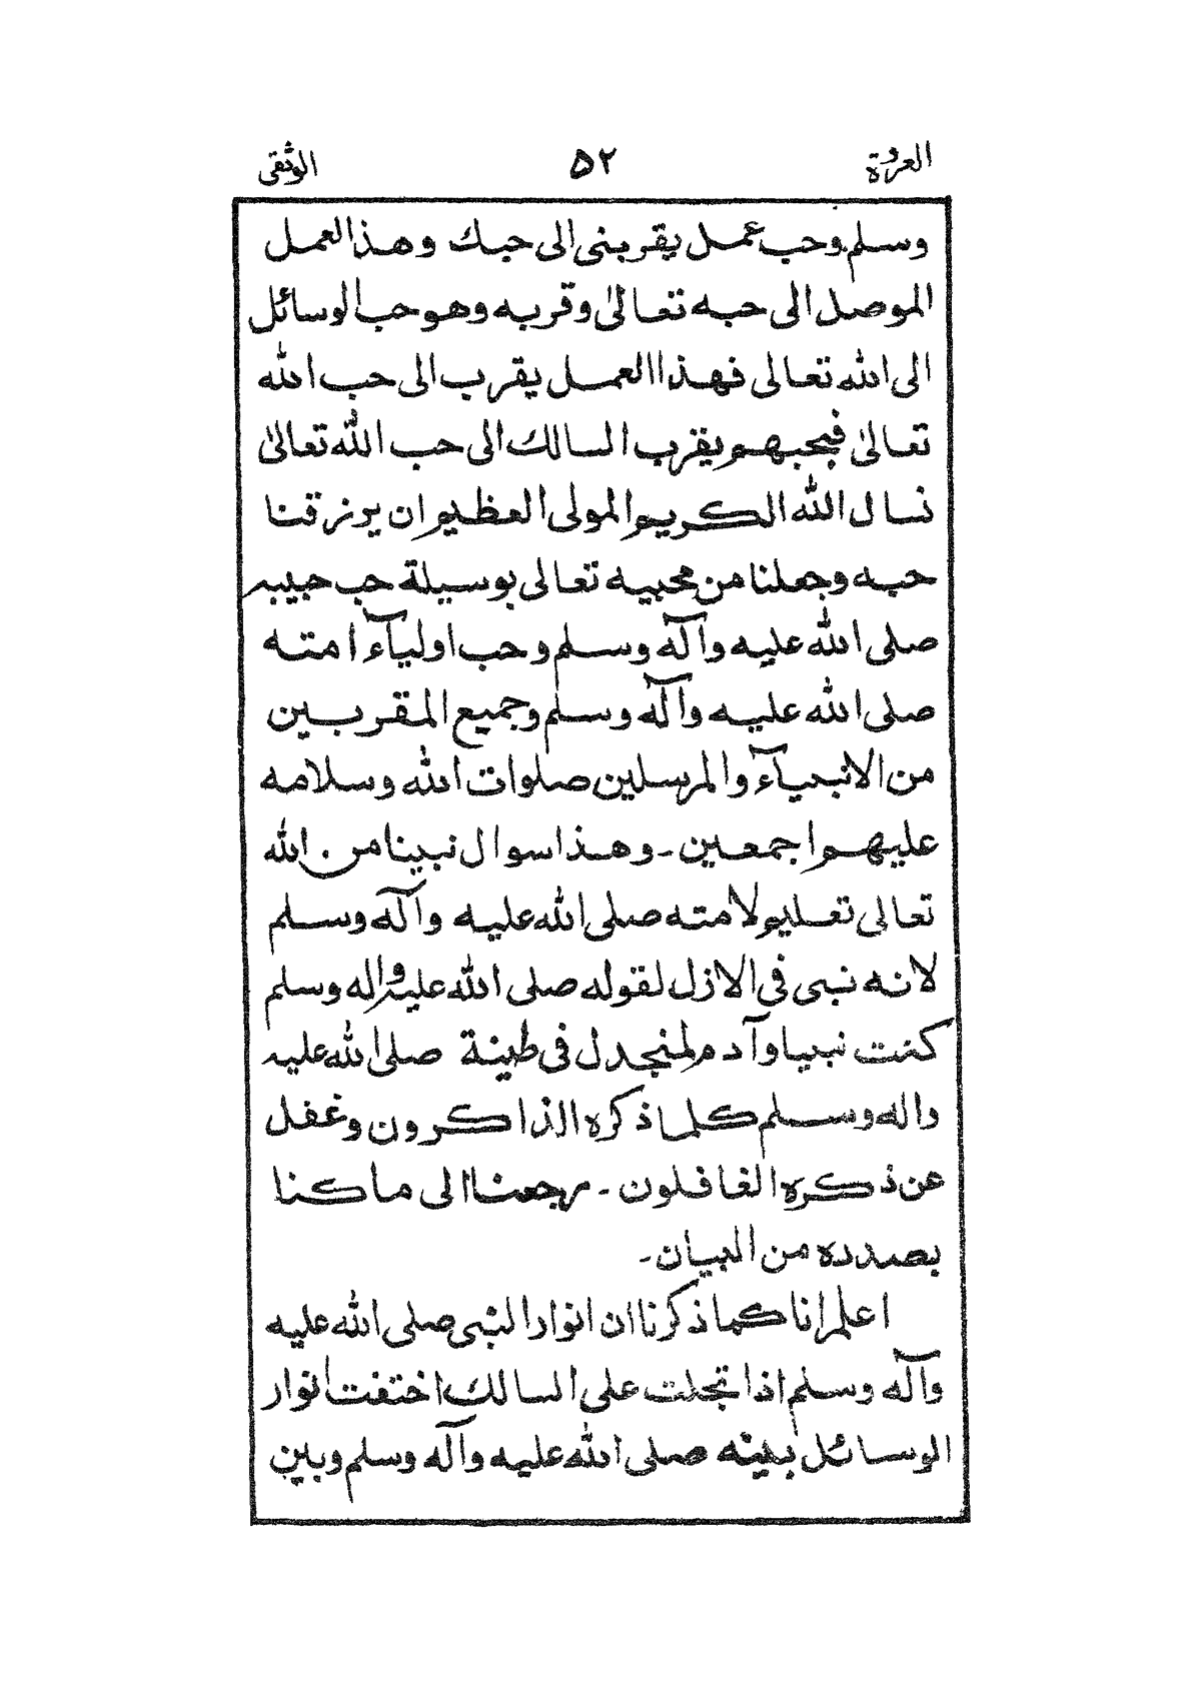 العروة ۵۲ الوثقى
وسلم وحب عمل يقربنى الى حبك وهذا العمل
الموصل الى حبه تعالىٰ وقربه وهو حب الوسائل
الى الله تعالى فهذا العمل يقرب الى حب الله
تعالىٰ فبحبهم يقرب السالك الى حب الله تعالىٰ
نسال الله الكريم المولى العظيم ان يرزقنا
حبه وجعلنا من محبيه تعالى بوسيلة حب حبيبه
صلى الله عليه وآله وسلم وحب اوليآء امته
صلى الله عليه وآله وسلم وجميع المقربين
من الانبيآء والمرسلين صلوات الله وسلامه
عليهم اجمعين۔ وهذا سوال نبينا من الله
تعالى تعليم لامته صلى الله عليه وآله وسلم
لانه نبى فى الازل لقوله صلى الله عليه واله وسلم
كنت نبيا وآدم لمنجدل فى طينة صلى الله عليه
واله وسلم كلما ذكره الذاكرون وغفل
عن ذكره الغافلون۔ رجعنا الى ما كنا
بصدده من البيان۔
اعلم انا كما ذكرنا ان انوار النبى صلى الله عليه
وآله وسلم اذا تجلت على السالك اختفت انوار
الوسائل بينه صلى الله عليه وآله وسلم وبين